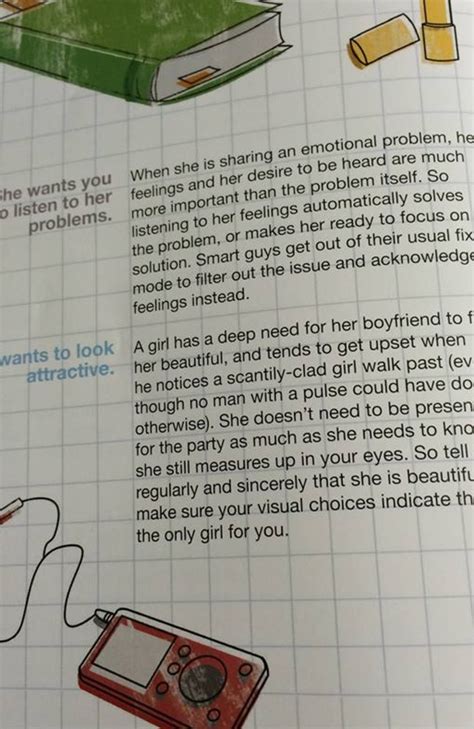 She wants you
o listen to her
problems.
When she is sharing an emotional problem, he
feelings and her desire to be heard are much
more important than the problem itself. So
listening to her feelings automatically solves
the problem, or makes her ready to focus on
solution. Smart guys get out of their usual fix
mode to filter out the issue and acknowledge
feelings instead.
wants to look
attractive.
A girl has a deep need for her boyfriend to f
her beautiful, and tends to get upset when
he notices a scantily-clad girl walk past (ev
though no man with a pulse could have do
otherwise). She doesn't need to be presen
for the party as much as she needs to kno
she still measures up in your eyes. So tell
regularly and sincerely that she is beautifu
make sure your visual choices indicate th
the only girl for you.